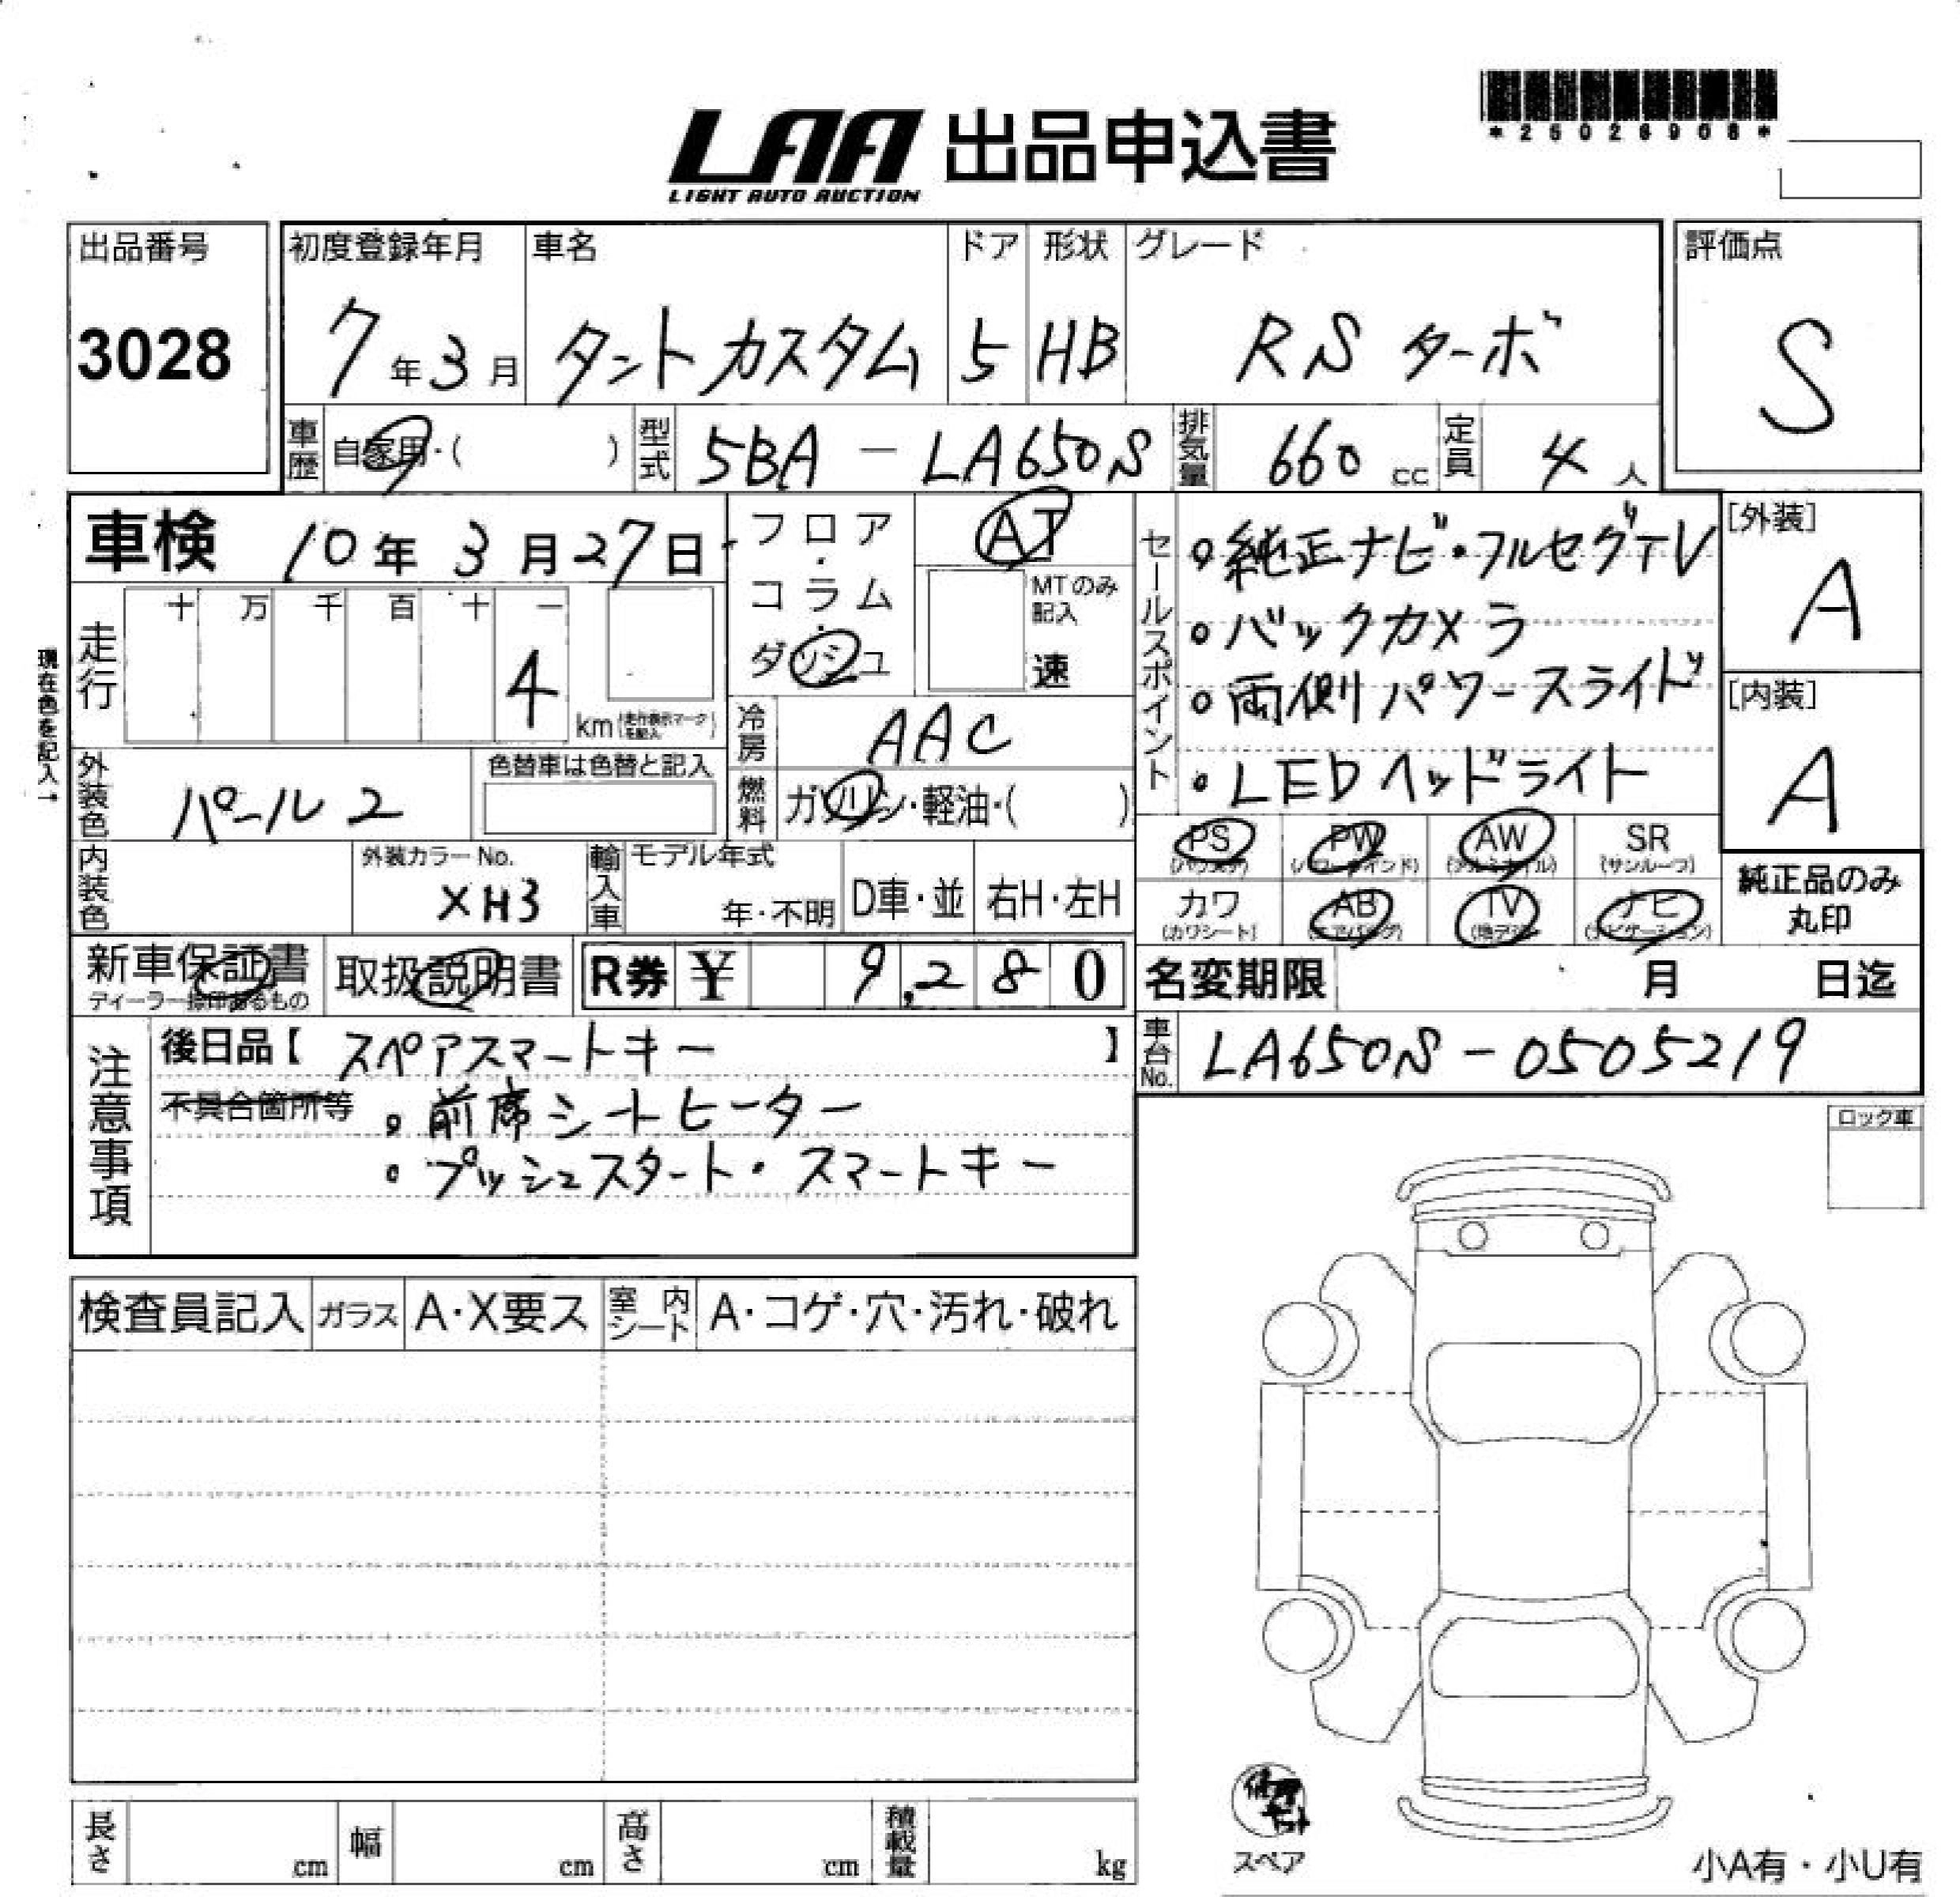 *25026908*
LAA 出品申込書
LIGHT AUTO AUCTION
出品番号
3028
初度登録年月
7年3月
車名
タントカスタム
ドア
5
形状
HB
グレード
RS ターボ
評価点
S
車歴 自家用・( )
型式 5BA - LA650S
排気量 660 cc
定員 4 人
車検 10年 3月27日
フロア・コラム・ダッシュ
AT
MTのみ記入
速
セールスポイント
。純正ナビ・フルセグTV
。バックカメラ
。両側パワースライド
。LEDヘッドライト
[外装]
A
[内装]
A
現在色を記入→
走行 十 万 千 百 十 一
4 km (走行表示マークを記入)
冷房 AAC
外装色 パール2
色替車は色替と記入
燃料 ガソリン・軽油・( )
PS (パワステ) PW (パワーウインド) AW (アルミホイル) SR (サンルーフ)
カワ (カワシート) AB (エアバッグ) TV (地デジ) ナビ (ナビゲーション)
純正品のみ丸印
内装色
外装カラーNo.
XH3
輸入車 モデル年式
年・不明 D車・並 右H・左H
新車保証書
ディーラー捺印あるもの
取扱説明書
R券 ¥ 9,280
名変期限 月 日迄
車台No. LA650S - 0505219
注意事項
後日品【 スペアスマートキー 】
不具合箇所等 。前席シートヒーター
。プッシュスタート・スマートキー
ロック車
検査員記入 ガラス A・X要ス 室内シート A・コゲ・穴・汚れ・破れ
長さ cm 幅 cm 高さ cm 積載量 kg
スペア
小A有・小U有